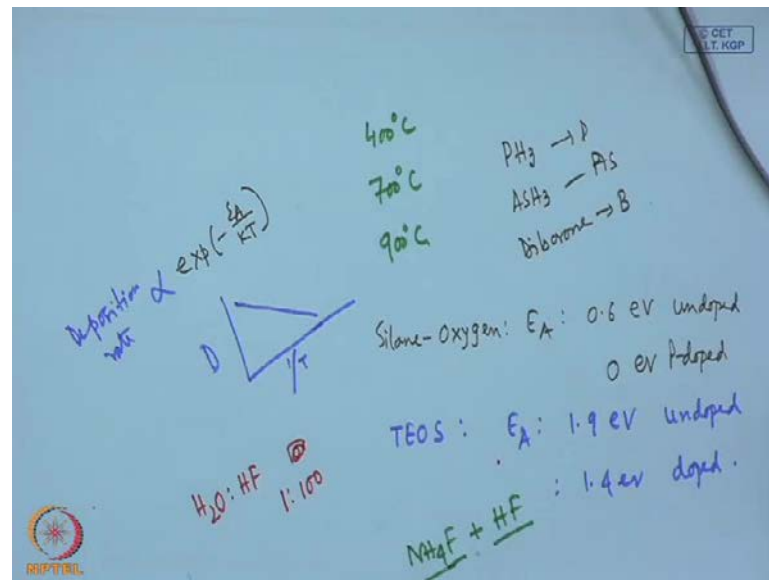 © CET
I.I.T. KGP
400°C
700°C
900°C
PH3 → P
ASH3 — AS
Diborone → B
Deposition rate ∝ exp(-EA/KT)
D
1/T
Silane-Oxygen: EA: 0.6 ev undoped
0 ev P-doped
TEOS: EA: 1.9 ev undoped
: 1.4 ev doped.
H2O:HF
1:100
NH4F + HF
NPTEL